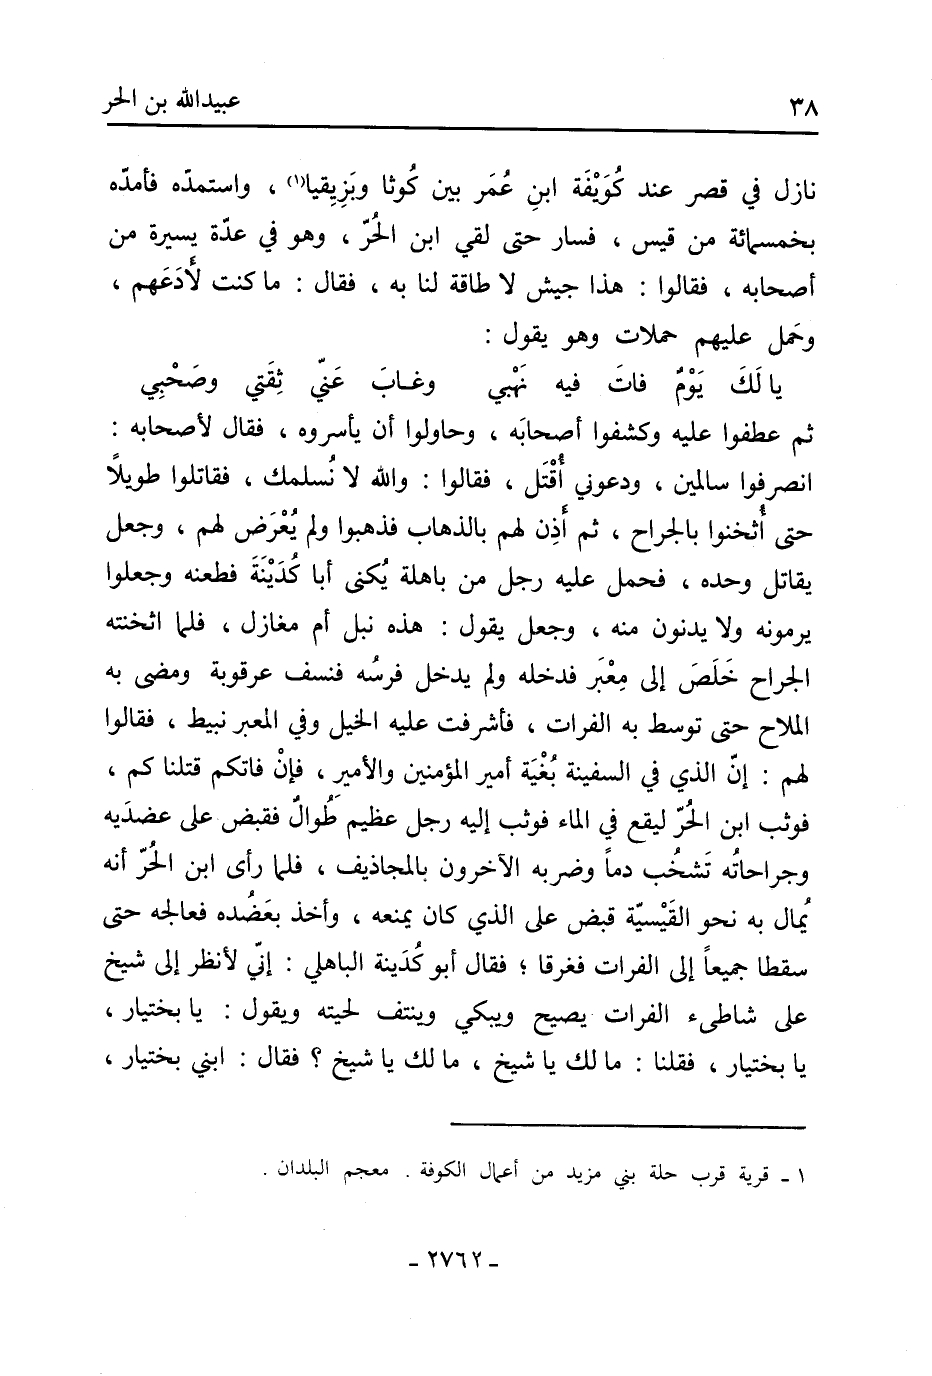 ٣٨ عبيدالله بن الحر
نازل في قصر عند كُوَيْفَة ابنِ عُمَر بين كُوثا وبَزِيِقيا(١) ، واستمدّه فأمدّه
بخمسمائة من قيس ، فسار حتى لقي ابن الحُرّ ، وهو في عدّة يسيرة من
أصحابه ، فقالوا : هذا جيش لا طاقة لنا به ، فقال : ما كنت لأَدَعَهم ،
وحَمل عليهم حملات وهو يقول :
يا لَكَ يَوْمٌ فاتَ فيه نَهْبي وغابَ عَنّي ثِقَتي وصَحْبِي
ثم عطفوا عليه وكشفوا أصحابَه ، وحاولوا أن يأسروه ، فقال لأصحابه :
انصرفوا سالمين ، ودعوني أُقْتَل ، فقالوا : والله لا نُسلمك ، فقاتلوا طويلاً
حتى أُثخنوا بالجراح ، ثم أَذِن لهم بالذهاب فذهبوا ولم يُعْرَض لهم ، وجعل
يقاتل وحده ، فحمل عليه رجل من باهلة يُكنى أبا كُدَيْنَةَ فطعنه وجعلوا
يرمونه ولا يدنون منه ، وجعل يقول : هذه نبل أم مغازل ، فلما اثخنته
الجراح خَلَصَ إلى مِعْبَر فدخله ولم يدخل فرسُه فنسف عرقوبة ومضى به
الملاح حتى توسط به الفرات ، فأشرفت عليه الخيل وفي المعبر نبيط ، فقالوا
لهم : إنّ الذي في السفينة بُغْيَة أمير المؤمنين والأمير ، فإنْ فاتكم قتلنا كم ،
فوثب ابن الحُرّ ليقع في الماء فوثب إليه رجل عظيم طُوالٌ فقبض على عضدَيه
وجراحاتُه تَشخُب دماً وضربه الآخرون بالمجاذيف ، فلما رأى ابن الحُرّ أنه
يُمال به نحو القَيْسيّة قبض على الذي كان يمنعه ، وأخذ بعَضُده فعالجه حتى
سقطا جميعاً إلى الفرات فغرقا ؛ فقال أبو كُدَينة الباهلي : إنّي لأنظر إلى شيخ
على شاطىء الفرات يصيح ويبكي وينتف لحيته ويقول : يا بختيار ،
يا بختيار ، فقلنا : ما لك يا شيخ ، ما لك يا شيخ ؟ فقال : ابني بختيار ،
١ - قرية قرب حلة بني مزيد من أعمال الكوفة . معجم البلدان .
- ٢٧٦٢ -